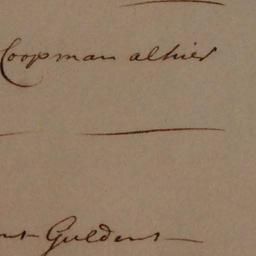 Coopman alhier
Guldens